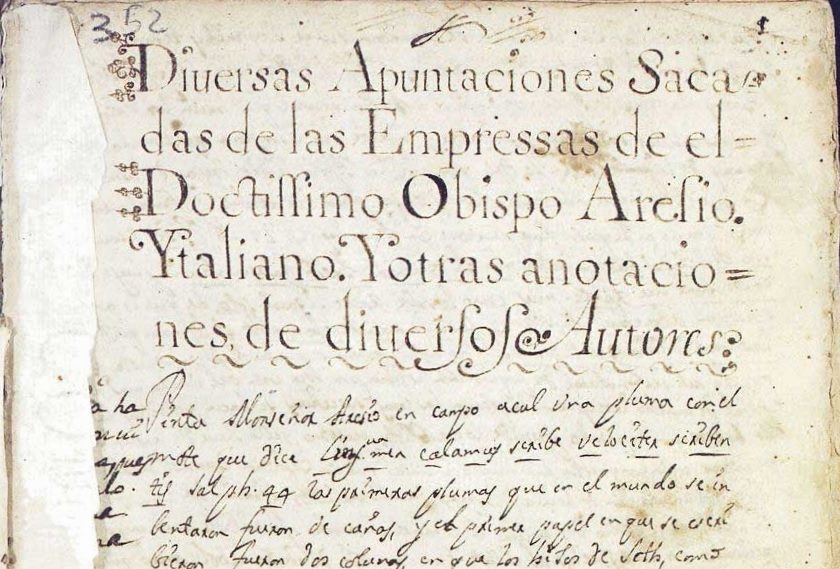 352
1
Diuersas Apuntaciones Saca-
das de las Empressas de el=
Doctissimo Obispo Aresio.
Ytaliano. Y otras anotacio=
nes, de diuersos Autores:
Pinta Monseñor Aresio en campo acul vna pluma con el
mote que dice Lingua mea calamus scribe velociter scriben
tis salph. 44 las primeras plumas que en el mundo se in
bentaron fueron de cañas, y el primer papel en que se escri
bieron fueron dos colunas, en que los hijos de Seth, como